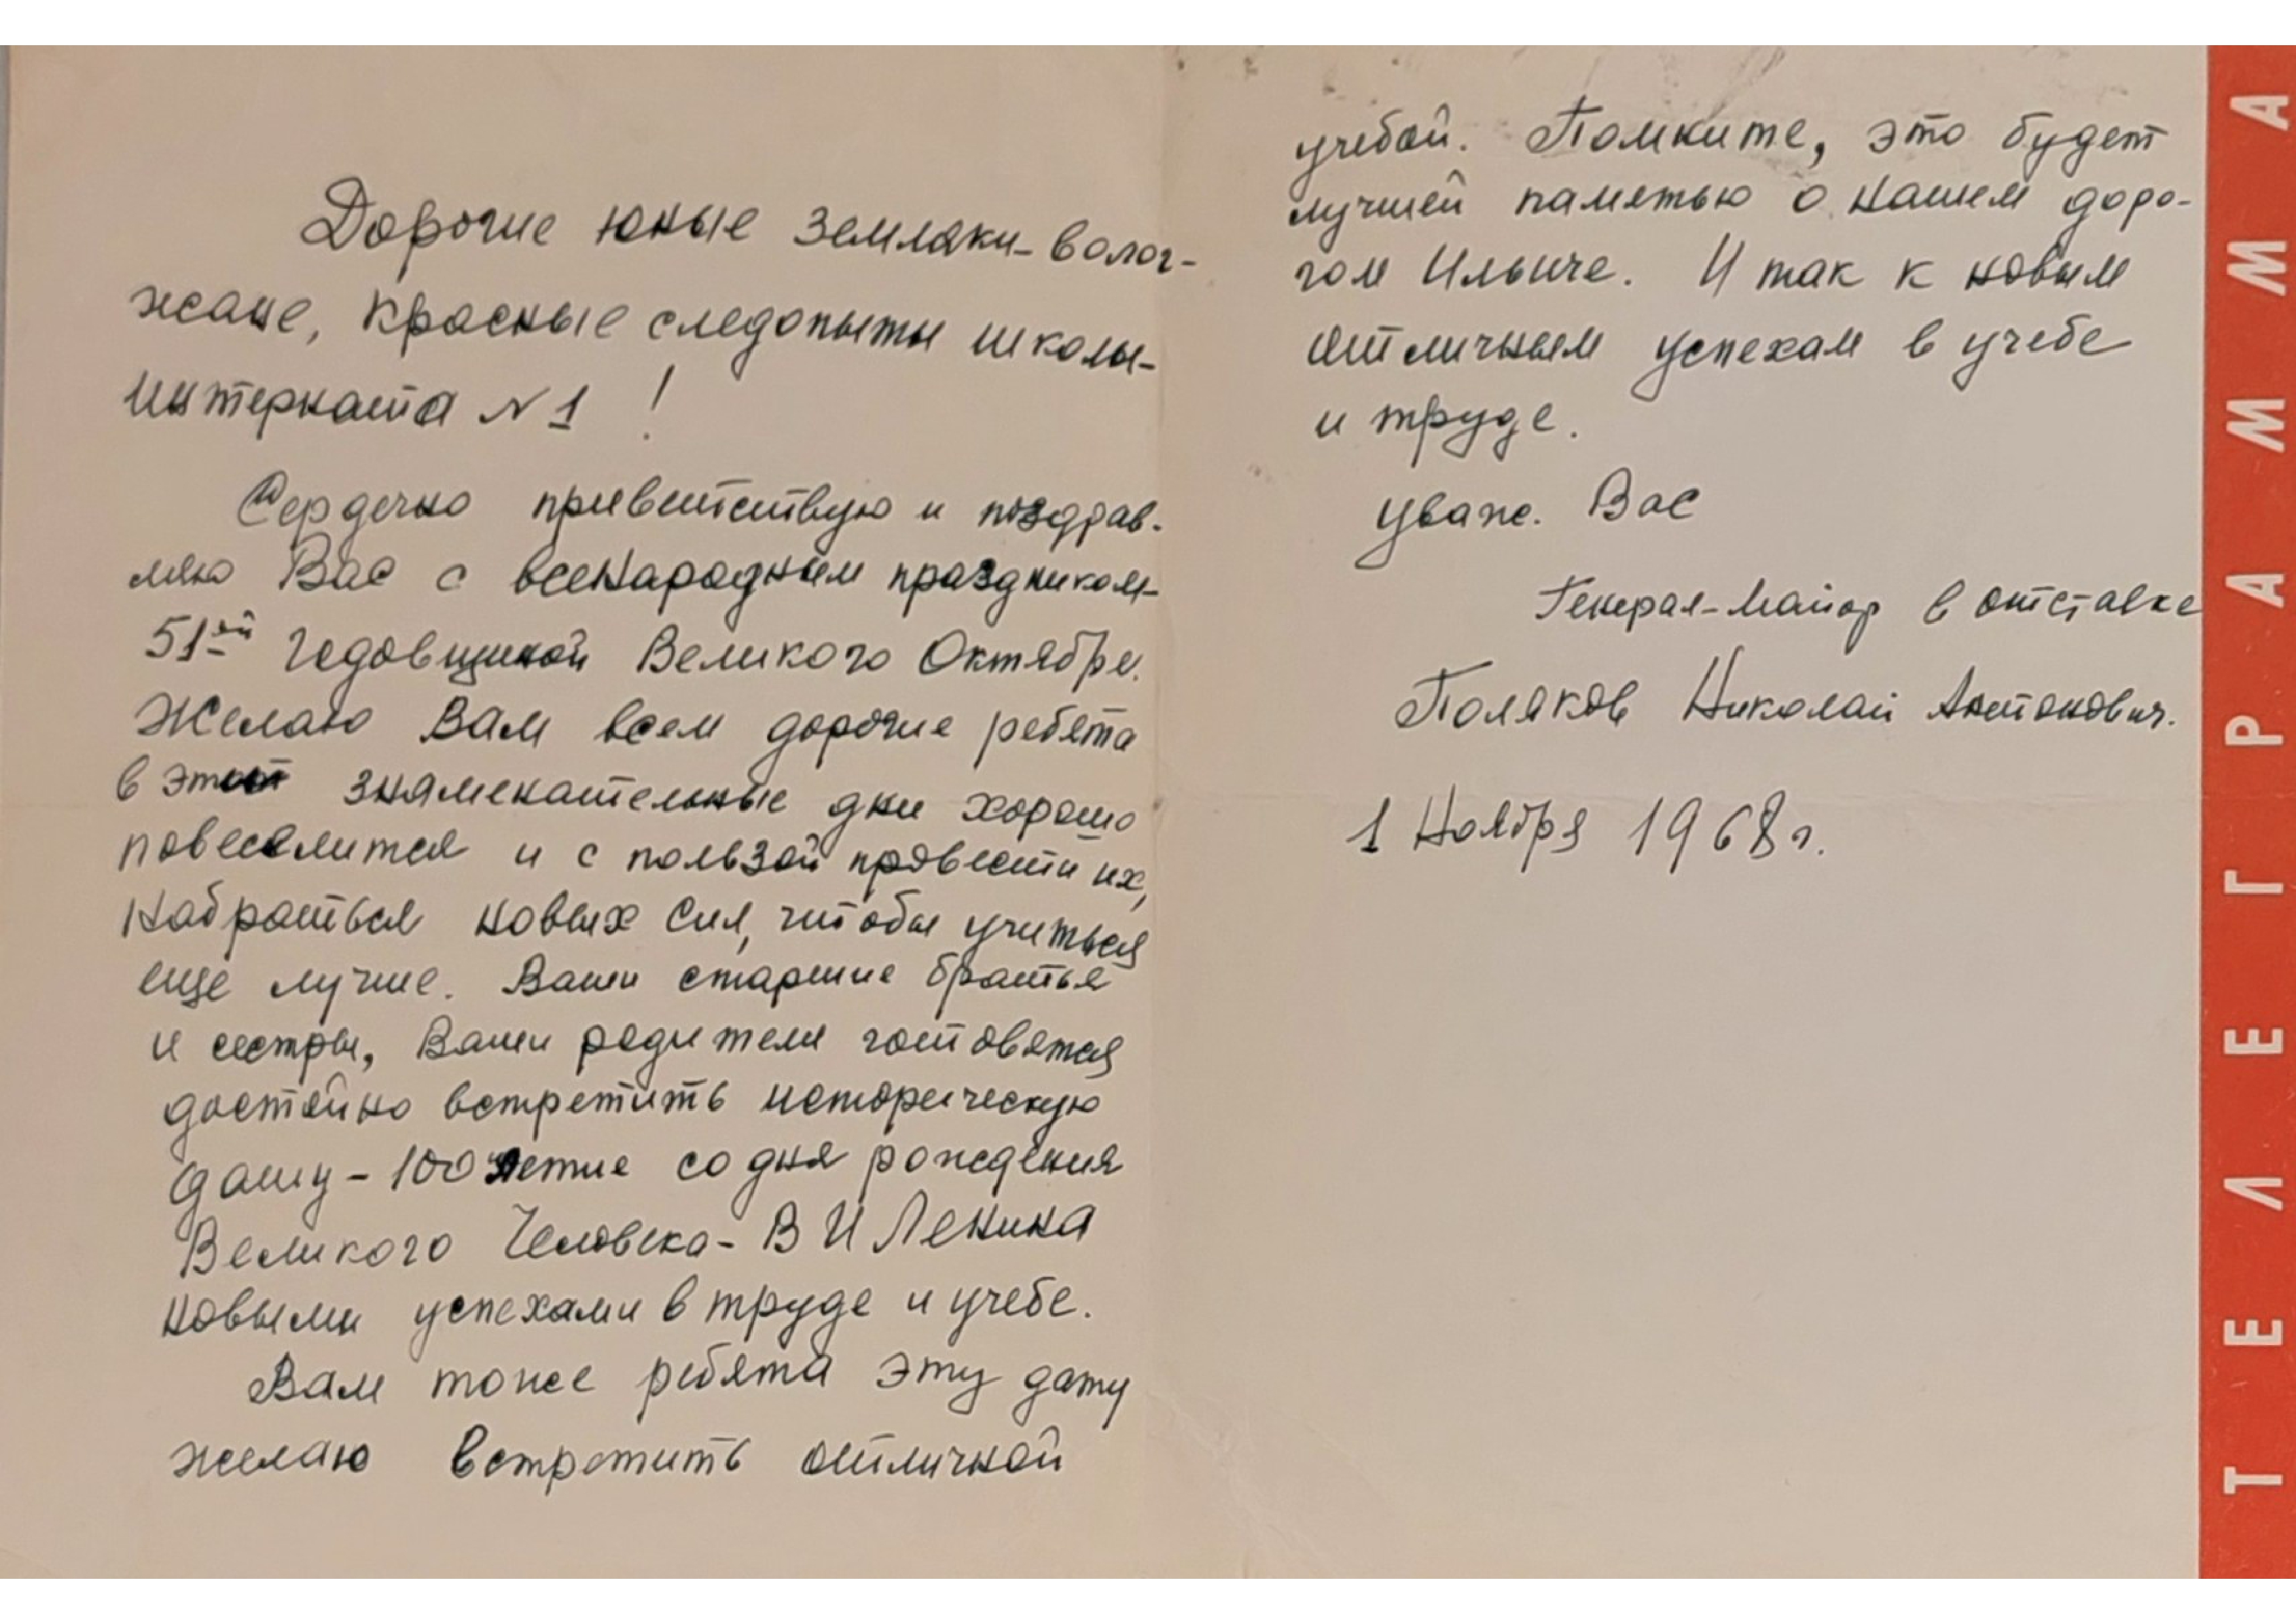 Дорогие юные земляки-волог-
жане, красные следопыты школы-
интерната №1 !
Сердечно приветствую и поздрав-
ляю Вас с всенародным праздником-
51ой годовщиной Великого Октября.
Желаю Вам всем дорогие ребята
в эти знаменательные дни хорошо
повеселится и с пользой провести их,
набраться новых сил, чтобы учиться
еще лучше. Ваши старшие братья
и сестры, Ваши родители готовятся
достойно встретить историческую
дату - 100 летие со дня рождения
Великого Человека - В И Ленина
новыми успехами в труде и учебе.
Вам тоже ребята эту дату
желаю встретить отличной
учебой. Помните, это будет
лучшей памятью о нашем доро-
гом Ильиче. И так к новым
отличным успехам в учебе
и труде.
Уваж. Вас
Генерал-Майор в отставке
Поляков Николай Антонович.
1 Ноября 1968 г.
ТЕЛЕГРАММА